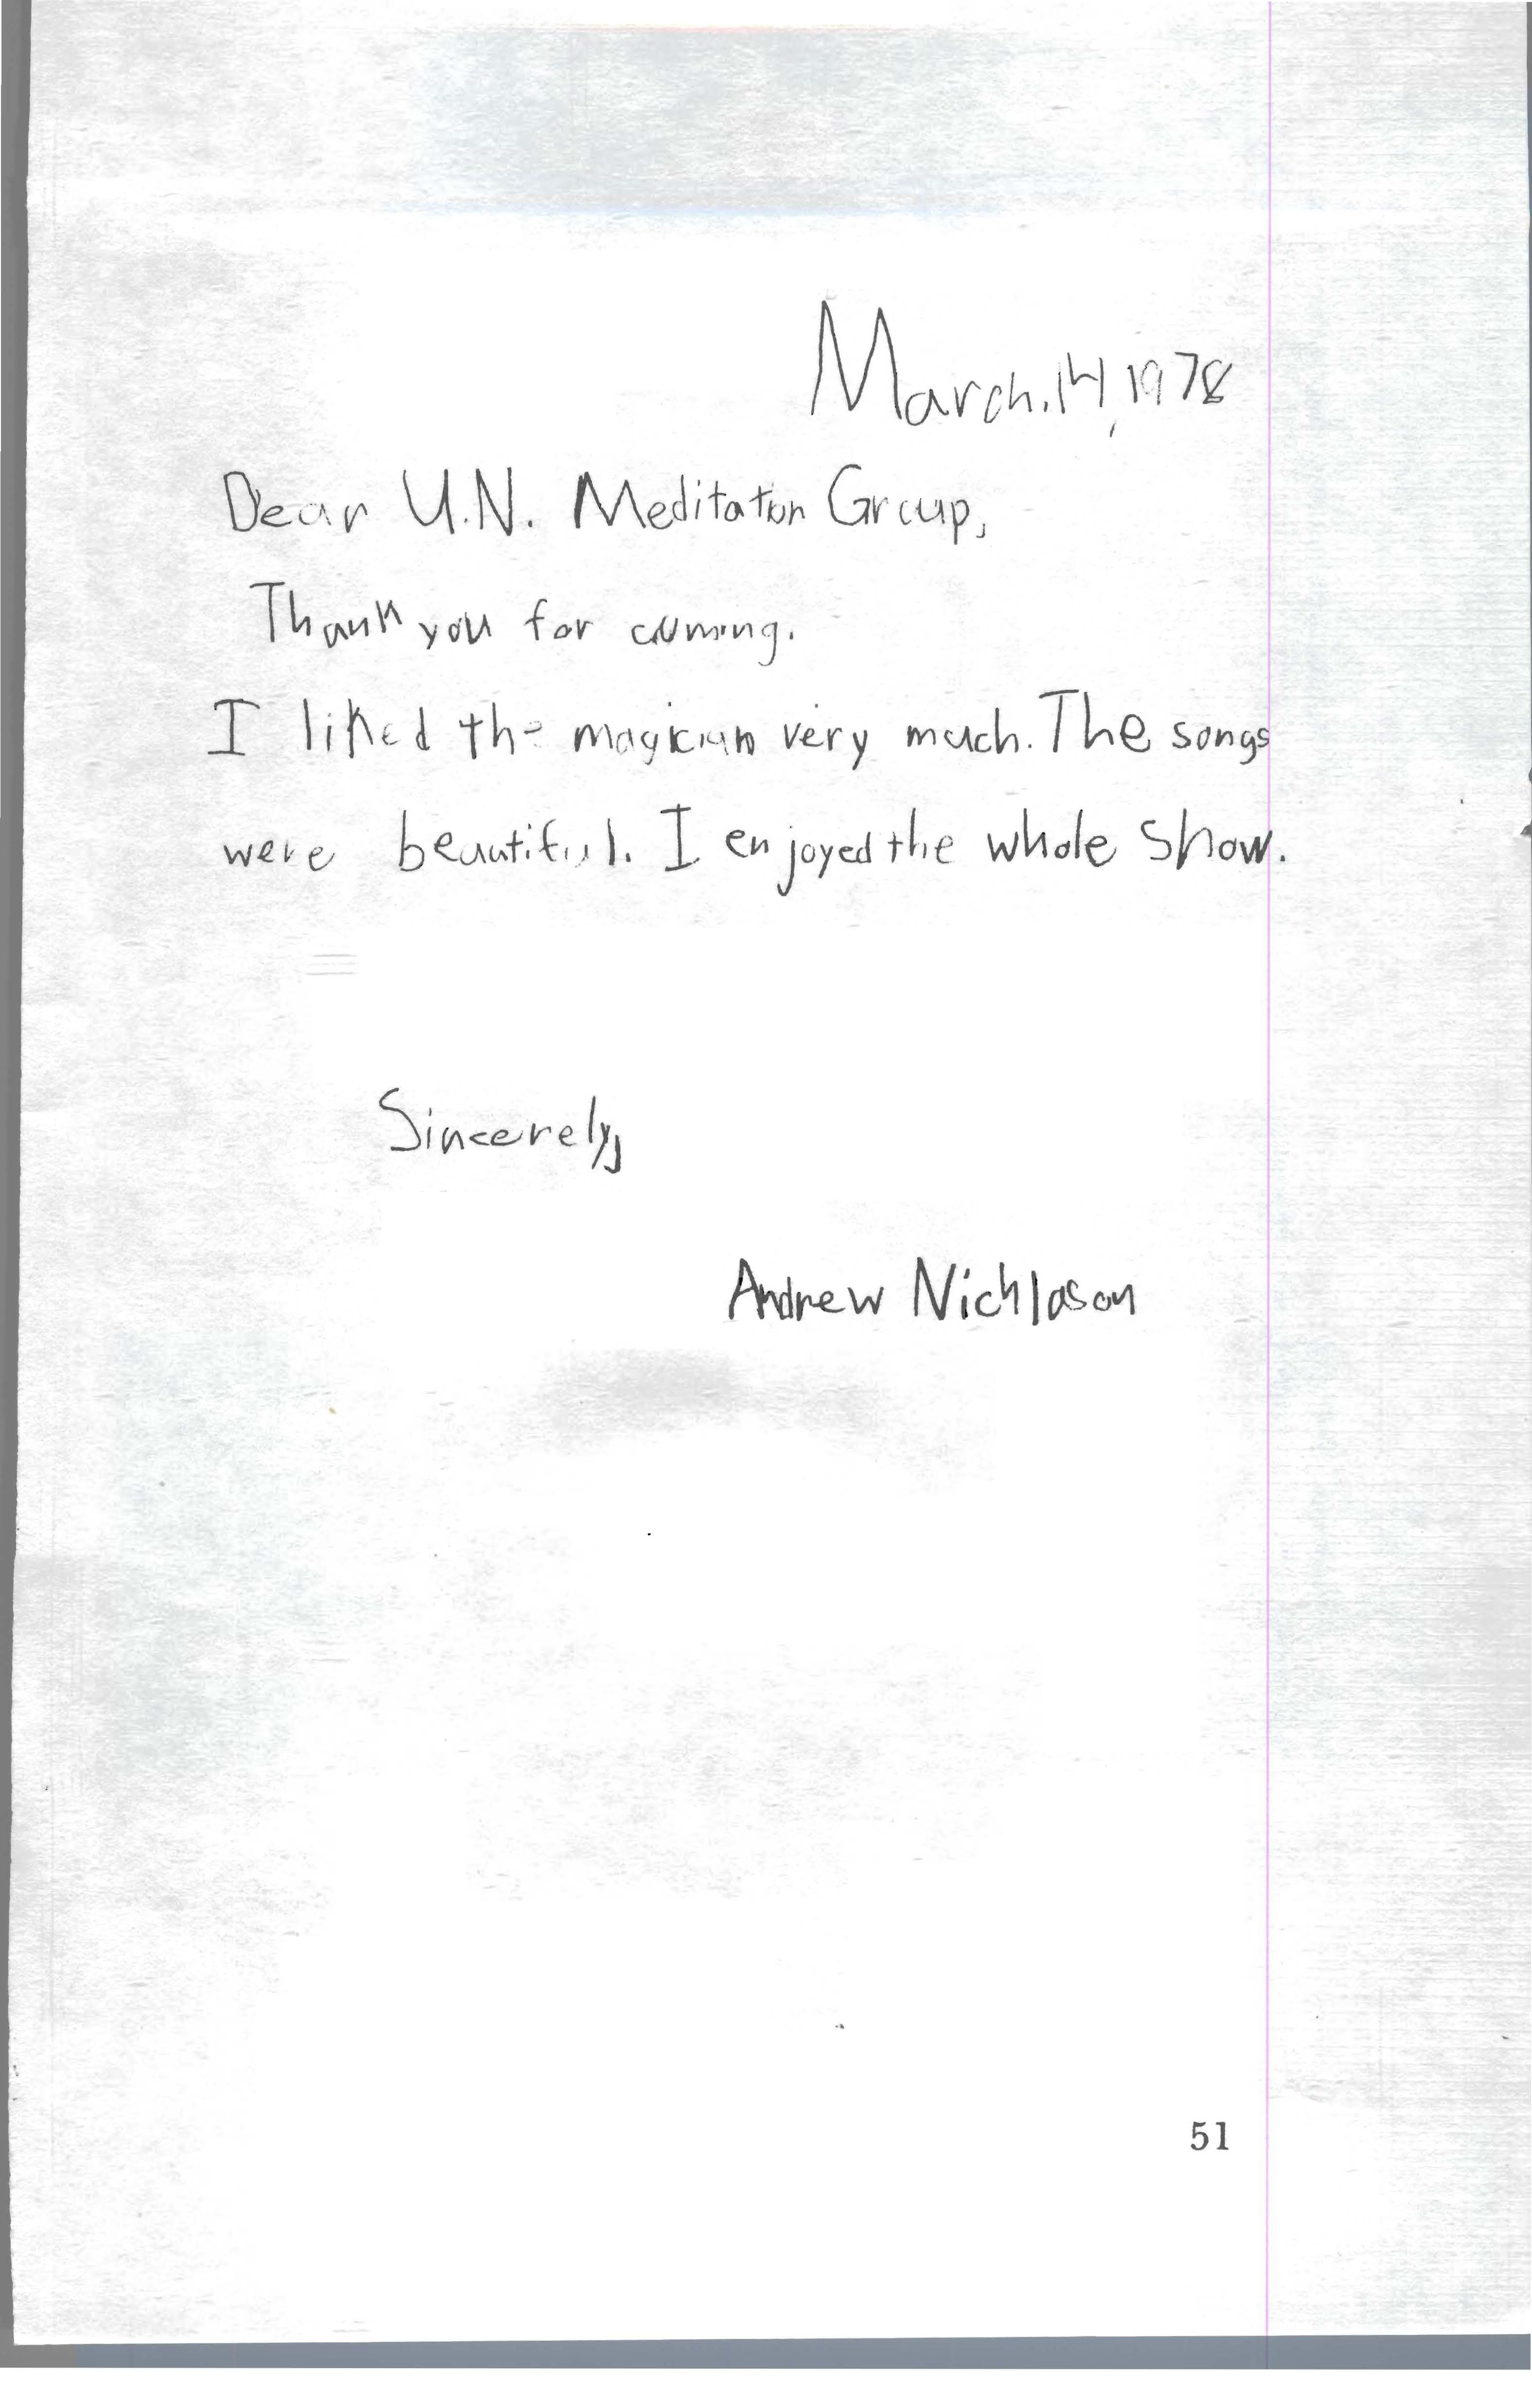 March. 14, 1978
Dear U.N. Meditation Group,
Thank you for coming.
I liked the magician very much. The songs
were beautiful. I enjoyed the whole show.
Sincerely,
Andrew Nichlason
51